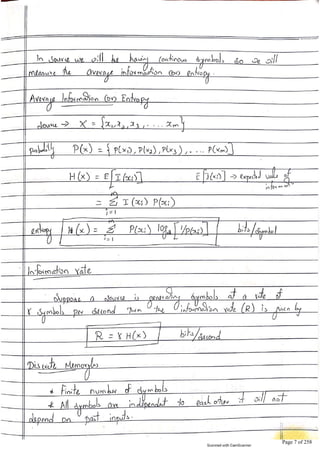 In source we will be having continous symbols so we will
measure the average information (or) entropy.
Average Information (or) Entropy
source → X = {x₁, x₂, x₃, .... xm}
probability P(x) = {P(x₁), P(x₂), P(x₃), ... P(xm)}
H(x) = E[I(xi)] E[I(xi)] → expected value of
information
= Σ I(xi) P(xi)
i=1
entropy H(x) = Σ P(xi) log₂ [1/P(xi)] bits/symbol
i=1
Information rate
Suppose a source is generating symbols at a rate of
r symbols per second Then the information rate (R) is given by
R = r H(x) bits/second
Discrete Memoryless
* Finite number of symbols
* All symbols are independent to each other it will not
depend on past inputs.
Scanned with CamScanner
Page 7 of 258